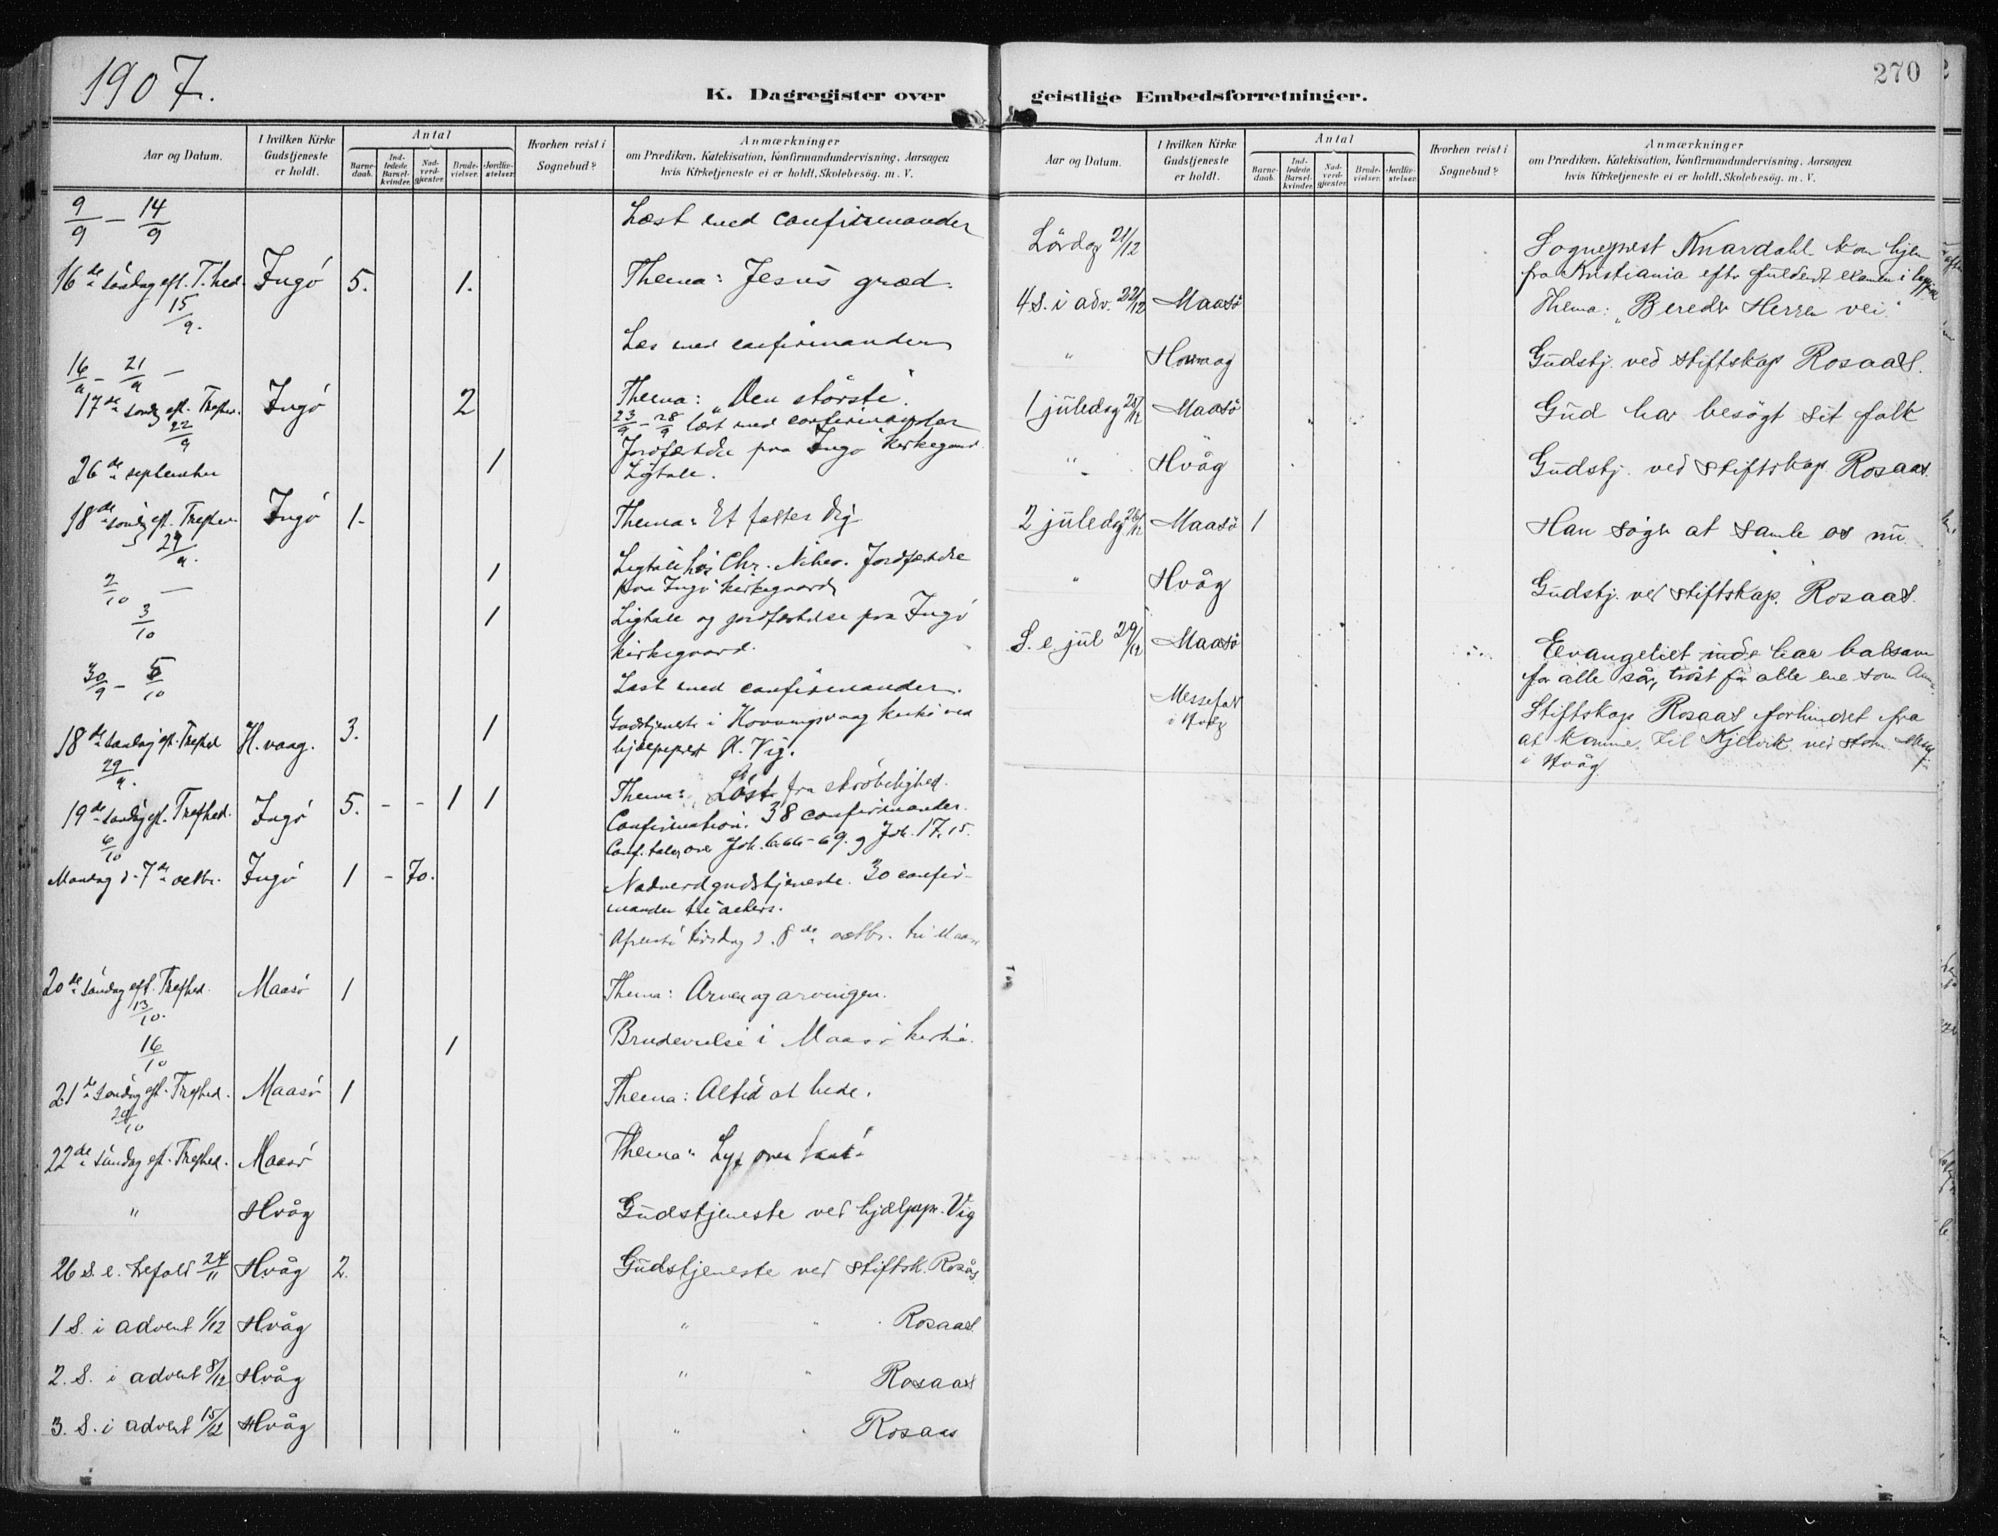 1907.
K. Dagregister over
Aar og Datum.
I hvilken Kirke Gudstjeneste er holdt.
Antal
Barne-daab.
Ind-ledede Barsel-kvinder.
Nad-verd-gjæster.
Brude-vielser.
Jordfæ-stelser.
Hvorhen reist i Sognebud?
Anmærkninger
om Prædiken, Katekisation, Konfirmandundervisning, Aarsagen
hvis Kirketjeneste ei er holdt, Skolebesøg. m. V.
9/9 — 14/9 Læst med confirmander
16de søndag eft. T.hed. 15/9. Ingø 5. 1. Thema: Jesus græd.
16/9 – 21/9 — Læs med confirmander
17de sønd eft. Trefhed. 22/9 Ingø 2 Thema: "Den største".
23/9 – 28/9 læst med confirmander
26de september 1 Jordfæstelse paa Ingø kirkegaard.
Ligtale.
18de søndag eft. Trefhed. 29/9. Ingø 1. Thema: Et fattes dig
2/10 — 1 Ligtale hos Chr. Jordfæstelse
paa Ingø kirkegaard
3/10 1 Ligtale og jordfæstelse paa Ingø
kirkegaard.
30/9 – 5/10 Læst med confirmander.
18de søndag eft. Trefhed 29/9. H.vaag. 3. 1 Gudstjeneste i Honningsvaag kirke ved
hjælpeprest H. Vig.
19de søndag eft. Trefhed. 6/10 Ingø 5. - - 1 1 Thema: Løst fra skrøbelighed.
Confirmation. 38 confirmander.
Conf. tale over Joh. 6.66-69. og Joh. 17.15.
Mandag d. 7de octbr. Ingø 1 - 70. Nadverdgudstjeneste. 30 confir-
mander til alters.
Afreiste tirsdag d. 8de octbr. til Maasø
20de søndag eft. Trefhed. 13/10. Maasø 1 Thema: Arven og arvingen.
16/10 1 Brudevielse i Maasø kirke.
21de søndag eft. Trefhed. 20/10 Maasø 1 Thema: Altid at bede.
22de søndag eft. Trefhed. Maasø Thema: Lys over
" Hvåg Gudstjeneste ved hjælpepr. Vig
26 S. e. trefold 24/11 Hvåg 2. Gudstjeneste ved stiftsk. Rosås
1 S. i advent 1/12 Hvåg " " Rosaas.
2. S. i advent 8/12 Hvåg " " Rosaas
3. S. i advent 15/12 Hvåg " " Rosaas
270
geistlige Embedsforretninger.
Aar og Datum.
I hvilken Kirke Gudstjeneste er holdt.
Antal
Barne-daab.
Ind-ledede Barsel-kvinder.
Nad-verd-gjæster.
Brude-vielser.
Jordfæ-stelser.
Hvorhen reist i Sognebud?
Anmærkninger
om Prædiken, Katekisation, Konfirmandundervisning, Aarsagen
hvis Kirketjeneste ei er holdt, Skolebesøg. m. V.
Lördag 21/12 Sogneprest Knardahl kom hjem
fra Kristiania efter fuldendt examen i
4 S. i adv. 22/12 Maasö Thema: "Bereder Herren vei."
" Gudstj. ved stiftskap Rosaas.
1 juledag 25/12 Maasö Gud har besögt sit folk
" Hvåg Gudstj. ved stiftskap. Rosaas.
2 juledag 26/12 Maasö 1 Han söger at samle os nu
" Hvåg Gudstj. ved stiftskap. Rosaas.
S. e jul 29/12 Maasö Evangeliet har balsam
for alle sår, tröst for alle ene som
Messefald i Hvåg Stiftskap. Rosaas forhindret fra
at komme til Kjelvik ved storm.
i Hvåg